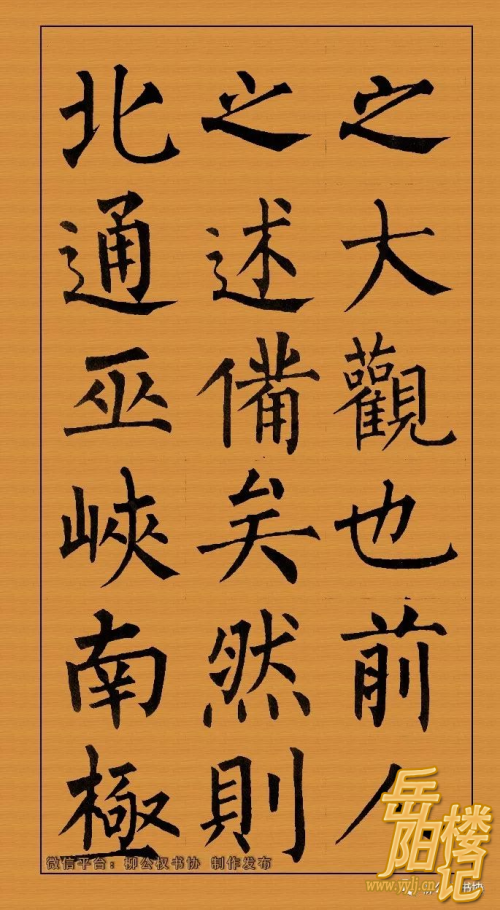 之大觀也前人
之述備矣然則
北通巫峽南極
微信平台：柳公权书协 制作发布
岳阳楼记
www.yylj.cn